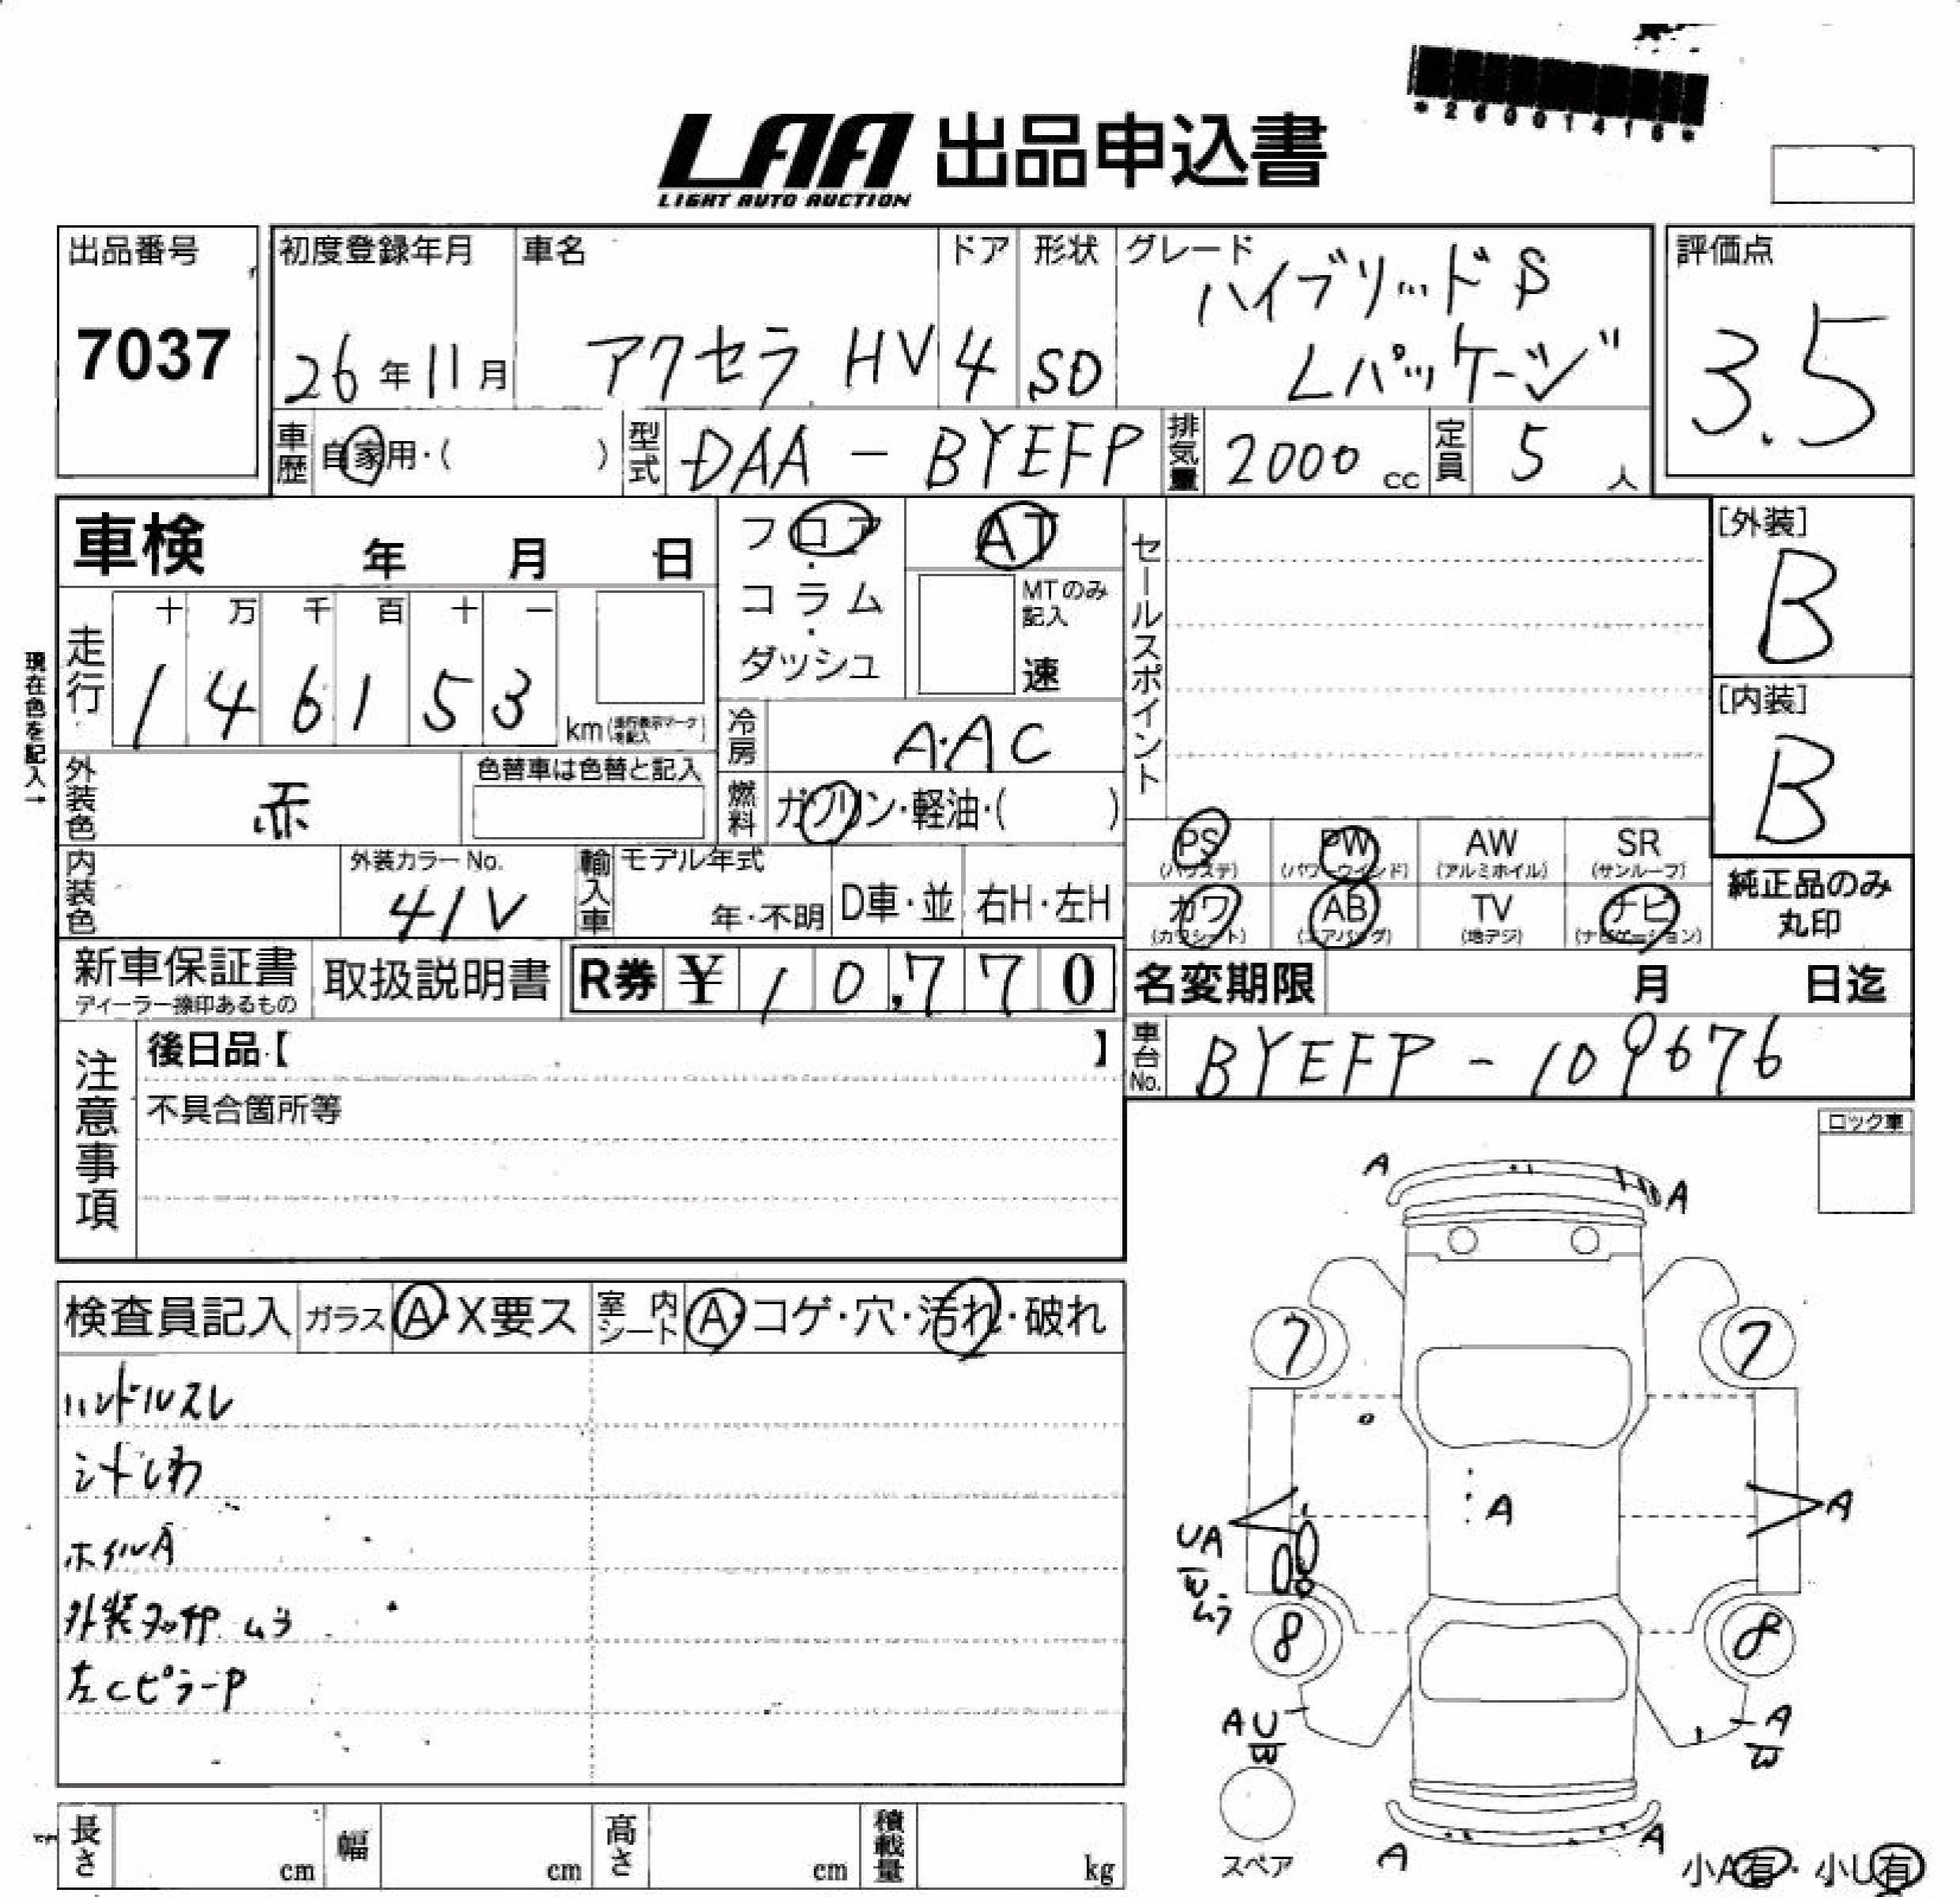 *26001416*
LAA 出品申込書
LIGHT AUTO AUCTION
出品番号
7037
初度登録年月
26年11月
車名
アクセラ HV
ドア
4
形状
SD
グレード
ハイブリッドS
Lパッケージ
評価点
3.5
車歴
自家用・( )
型式
DAA - BYEFP
排気量
2000 cc
定員
5 人
車検 年 月 日
フロア・コラム・ダッシュ
AT
MTのみ記入
速
セールスポイント
[外装]
B
[内装]
B
現在色を記入→
走行
十 万 千 百 十 一
1 4 6 1 5 3
km(走行表示マークを記入)
冷房
A・AC
外装色
赤
色替車は色替と記入
燃料
ガソリン・軽油・( )
内装色
外装カラーNo.
41V
輸入車
モデル年式
年・不明
D車・並
右H・左H
PS
(パワステ)
PW
(パワーウインド)
AW
(アルミホイル)
SR
(サンルーフ)
カワ
(カワシート)
AB
(エアバッグ)
TV
(地デジ)
ナビ
(ナビゲーション)
純正品のみ
丸印
新車保証書
ディーラー捺印あるもの
取扱説明書
R券 ¥ 10,770
名変期限 月 日迄
車台No.
BYEFP - 109676
注意事項
後日品【 】
不具合箇所等
ロック車
検査員記入
ガラス
A・X要ス
室内シート
A・コゲ・穴・汚れ・破れ
ハンドルスレ
シートしわ
ホイルA
外装タッチP ムラ
左CピラーP
A
A
7
7
A
A
UA
ムラ
8
8
AU
W
A
W
スペア
A
A
小A有・小U有
長さ cm
幅 cm
高さ cm
積載量 kg